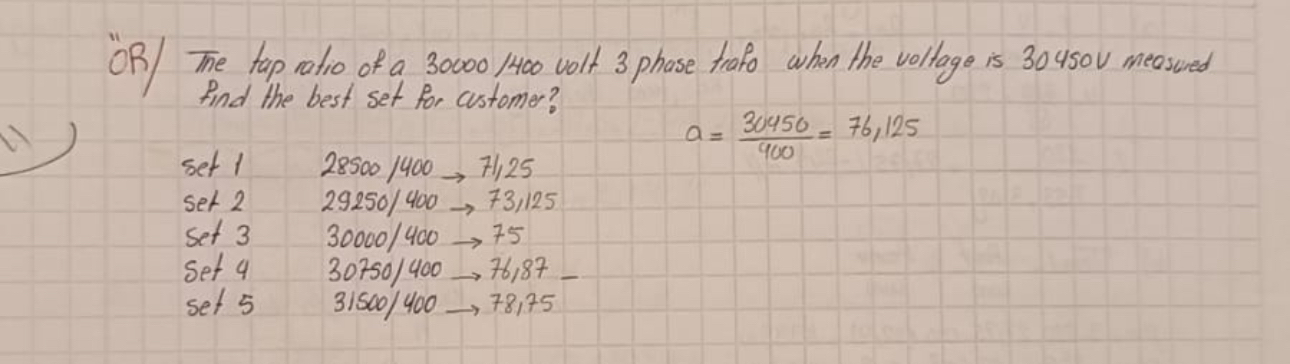 ÖR/ The tap ratio of a 30000/400 volt 3 phase trafo when the voltage is 30450V measured
find the best set for customer?
a = 30450/400 = 76,125
set 1 28500/400 → 71,25
set 2 29250/400 → 73,125
Set 3 30000/400 → 75
Set 4 30750/400 → 76,87 –
set 5 31500/400 → 78,75